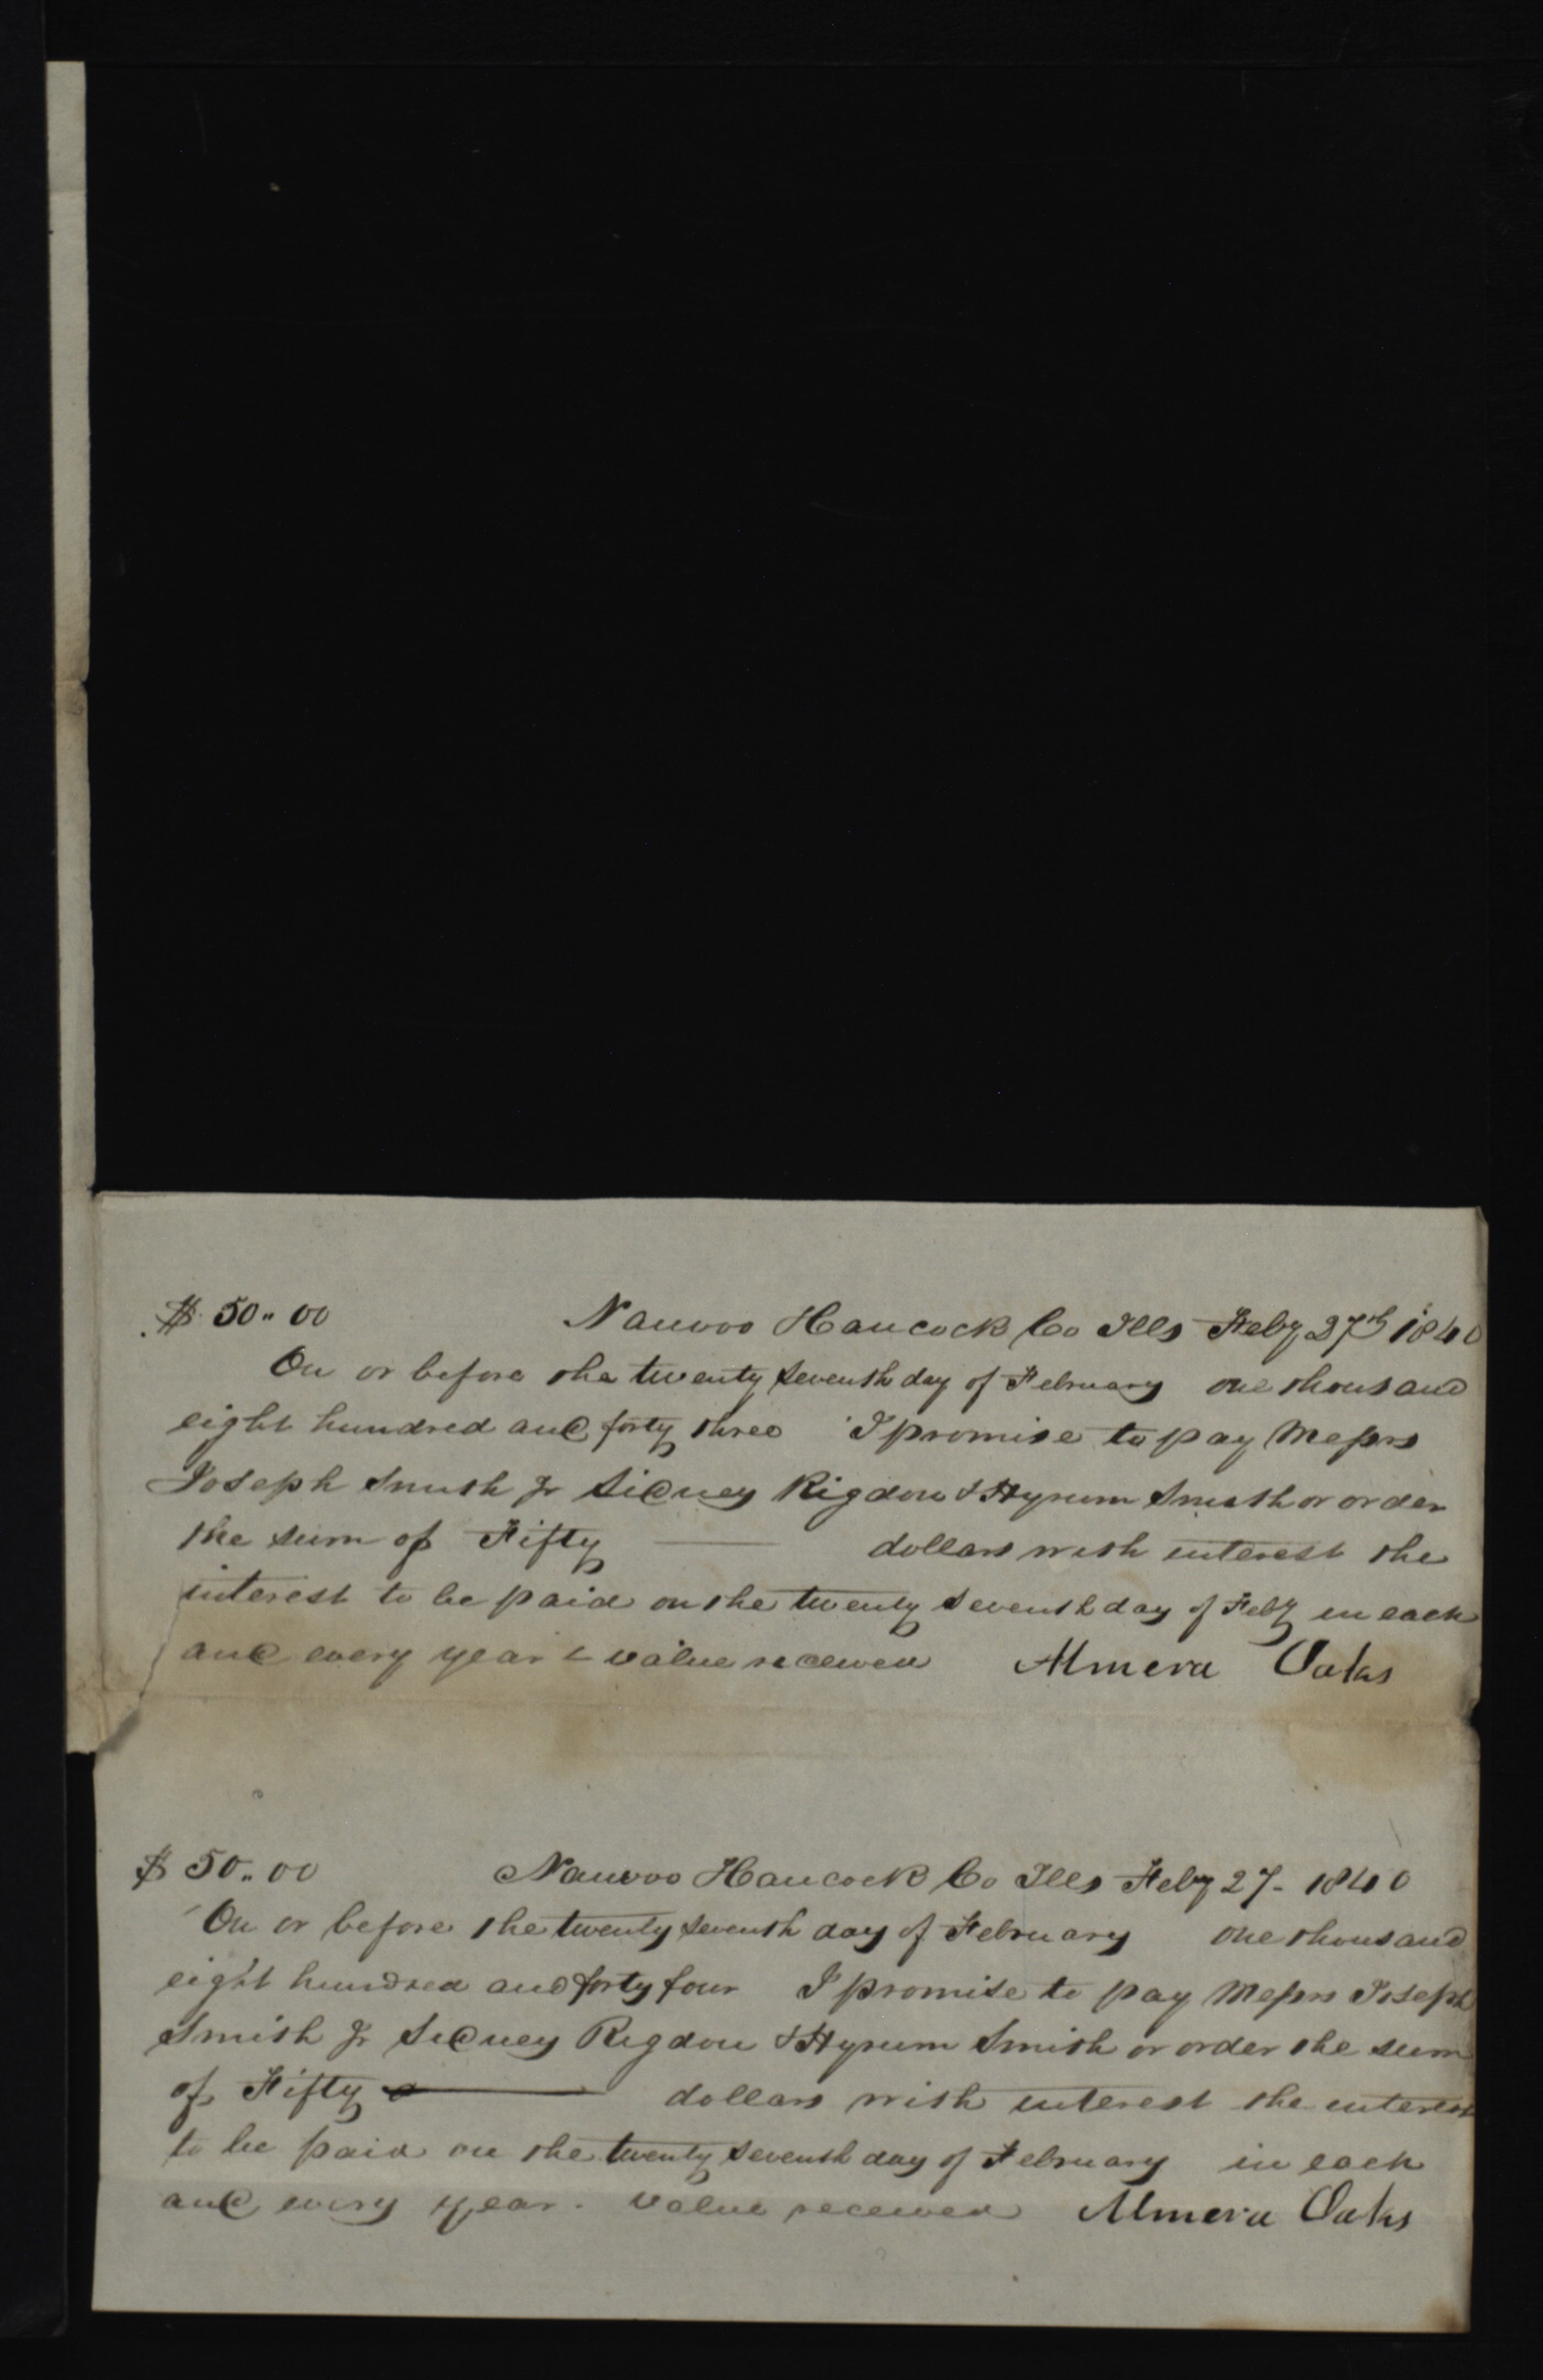 $ 50.. 00 Nauvoo Hancock Co Ills Feby 27th 1840
On or before the twenty seventh day of February one thousand
eight hundred and forty three I promise to pay Messrs
Joseph Smith Jr Sidney Rigdon & Hyrum Smith or order
the sum of Fifty —— dollars with interest the
interest to be paid on the twenty seventh day of Feby in each
and every year - value received Almera Oaks
$ 50.. 00 Nauvoo Hancock Co Ills Feby 27- 1840
On or before the twenty seventh day of February one thousand
eight hundred and forty four I promise to pay Messrs Joseph
Smith Jr Sidney Rigdon & Hyrum Smith or order the sum
of Fifty —— dollars with interest the interest
to be paid on the twenty seventh day of February in each
and every year. value received Almera Oaks